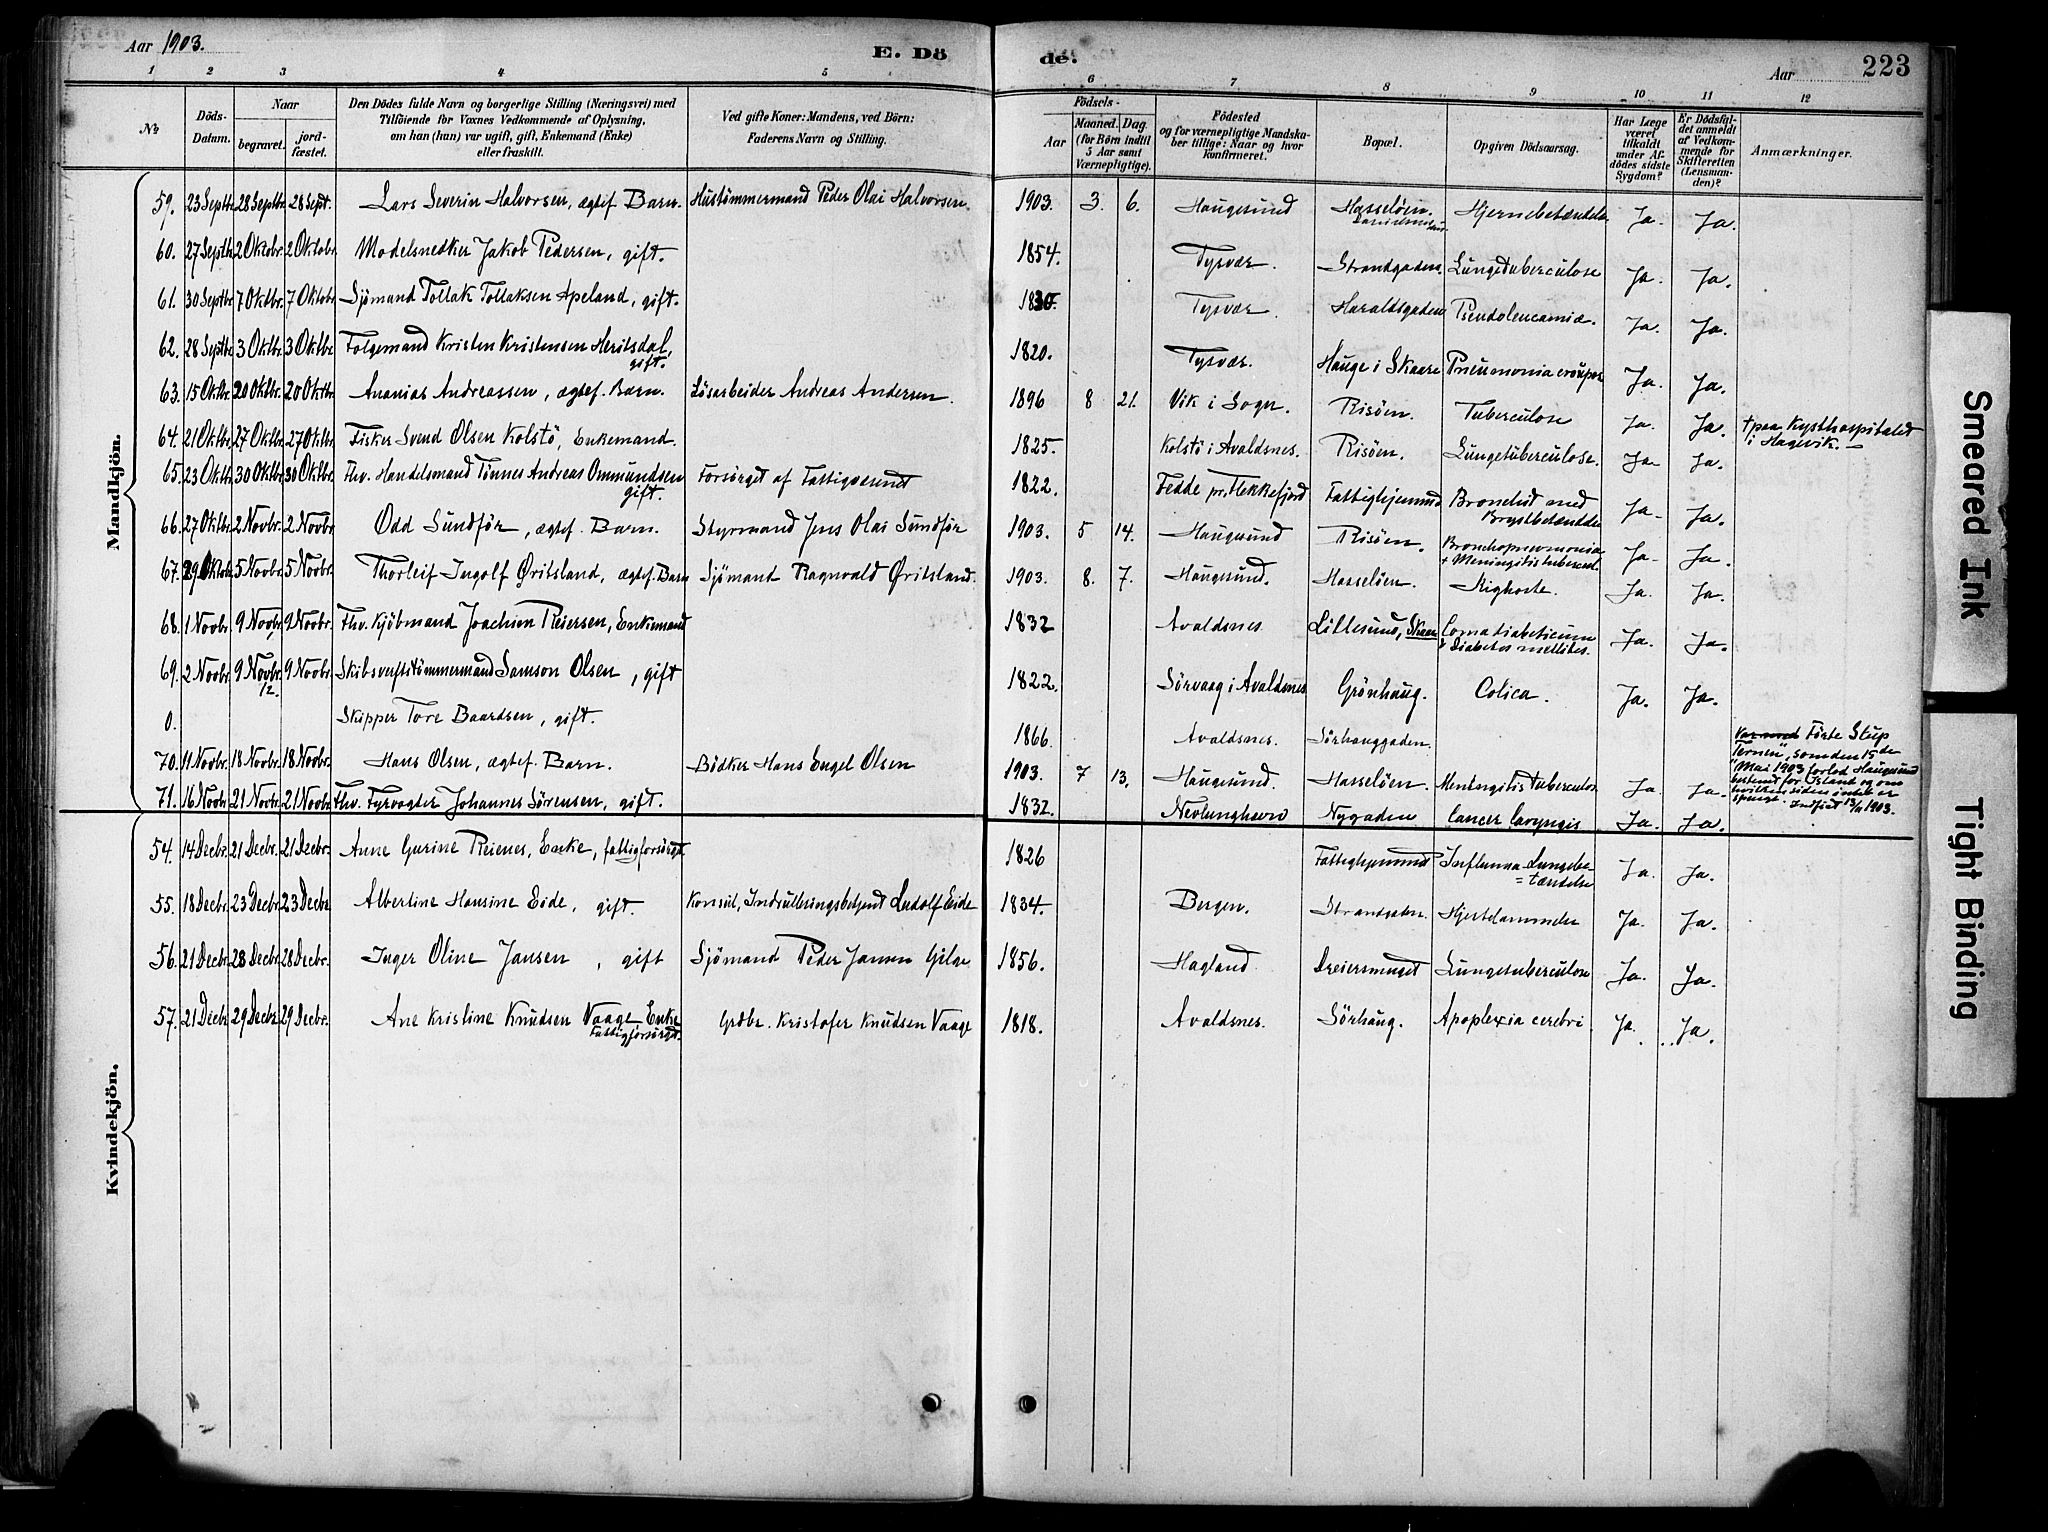 Aar 1903.
E. Döde.
Aar
223
1 2 3 4 5 6 7 8 9 10 11 12
No
Döds-Datum.
Naar
begravet.
jordfæstet.
Den Dödes fulde Navn og borgerlige Stilling (Næringsvei) med
Tilföiende for Voxnes Vedkommende af Oplysning,
om han (hun) var ugift, gift, Enkemand (Enke)
eller fraskilt.
Ved gifte Koner: Mandens, ved Börn:
Faderens Navn og Stilling.
Födsels-
Aar
Maaned. Dag.
(for Börn indtil
5 Aar samt
Værnepligtige).
Födested
og for værnepligtige Mandska-
ber tillige: Naar og hvor
konfirmeret.
Bopæl.
Opgiven Dödsaarsag.
Har Læge
været
tilkaldt
under Af-
dödes sidste
Sygdom?
Er Dödsfal-
det anmeldt
af Vedkom-
mende for
Skifteretten
(Lensman-
den)?
Anmærkninger.
Mandkjön.
59. 23 Septbr. 28 Septbr. 28 Sept. Lars Severin Halvorsen, ægtef. Barn. Hustömmermand Peder Olai Halvorsen. 1903. 3. 6. Haugesund Hasselöen. Hjernebetændelse Ja. Ja.
60. 27 Septbr. 2 Oktobr. 2 Oktobr. Modelsnedker Jakob Pedersen, gift. 1854. Tysvær. Strandgaden. Lungetuberculose Ja. Ja.
61. 30 Septbr. 7 Oktbr. 7 Oktobr. Sjömand Tollak Tollaksen Apeland, gift. Tysvær. Haraldsgaden Pseudoleucamiæ. Ja. Ja.
62. 28 Septbr. 3 Oktbr. 3 Oktbr. Folgemand Kristen Kristensen Heritsdal, gift. 1820. Tysvær. Hauge i Skaare Pneumonia croupos Ja. Ja.
63. 15 Oktbr. 20 Oktbr. 20 Oktbr. Ananias Andreassen, ægtef. Barn. Lösarbeider Andreas Andersen. 1896 8 21. Vik i Sogn. Risöen. Tuberculose Ja. Ja. † paa Kysthospitalet i Hagevik.
64. 21 Oktbr. 27 Oktbr. 27 Oktbr. Fisker Svend Olsen Kolstö, Enkemand. 1825. Kolstö i Avaldsnes. Risöen. Lungetuberculose. Ja Ja.
65. 23 Oktbr. 30 Oktbr. 30 Oktbr. Fhv. Handelsmand Tönnes Andreas Ommundsen gift. Forsörget af Fattigvæsenet 1822. Fedde pr. Flekkefjord Fattighjemmet Bronchit med Brystbetændelse Ja Ja.
66. 27 Oktbr. 2 Novbr. 2 Novbr. Odd Sundför, ægtef. Barn. Styrmand Jens Olai Sundför 1903. 5 14. Haugesund Risöen. Bronchopneumonia + Meningitis tubercul. Ja Ja.
67. 29 Oktbr. 5 Novbr. 5 Novbr. Thorleif Ingolf Øritsland, ægtef. Barn Sjömand Ragnvald Øritsland. 1903. 8. 7. Haugesund. Hasselöen. Kighoste. Ja. Ja.
68. 1 Novbr. 9 Novbr. 9 Novbr. Fhv. Kjöbmand Joachim Reiersen, Enkemand 1832 Avaldsnes Lillesund, Skaare Coma diabeticum & Diabetes mellites. Ja. Ja.
69. 2 Novbr. 9 Novbr. 9 Novbr. Skibsverftstömmermand Samson Olsen, gift 1822. Sörvaag i Avaldsnes Grönhaug. Colica. Ja. Ja.
0. Skipper Tore Baardsen, gift. 1866. Avaldsnes. Sörhauggaden. Förte Skip "Ternen", som den 15de Mai 1903 forlod Haugesund bestemt for Island og om hvilken siden intet er spurgt. Indført 13/11 1903.
70. 11 Novbr. 18 Novbr. 18 Novbr. Hans Olsen, ægtef. Barn. Bödker Hans Engel Olsen 1903. 7 13. Haugesund. Hasselöen. Meningitis tuberculos. Ja. Ja.
71. 16 Novbr. 21 Novbr. 21 Novbr. Fhv. Fyrvogter Johannes Sörensen, gift. 1832. Nevlunghavn Nygaden Cancer laryngis Ja. Ja.
Kvindekjön.
54. 14 Decbr. 21 Decbr. 21 Decbr. Anne Gurine Reienes, Enke, fattigforsörget. 1826 Fattighjemmet Influenza-Lungebe-tændelse Ja. Ja.
55. 18 Decbr. 23 Decbr. 23 Decbr Albertine Hansine Eide, gift. Konsul, Indrulleringsbetjent Ludolf Eide 1834. Bergen. Strandgaden. Hjertelammelse Ja. Ja.
56. 21 Decbr. 28 Decbr. 28 Decbr. Inger Oline Jansen, gift Sjömand Peder Jansen Gilje 1856. Hagland. Dreiersmuget Lungetuberculose Ja. Ja.
57. 21 Decbr. 29 Decbr. 29 Decbr. Ane Kristine Knudsen Vaage Enke Fattigforsörget. Grdbr. Kristofer Knudsen Vaage 1818. Avaldsnes. Sörhaug. Apoplexia cerebri Ja. Ja.
Smeared Ink
Tight Binding